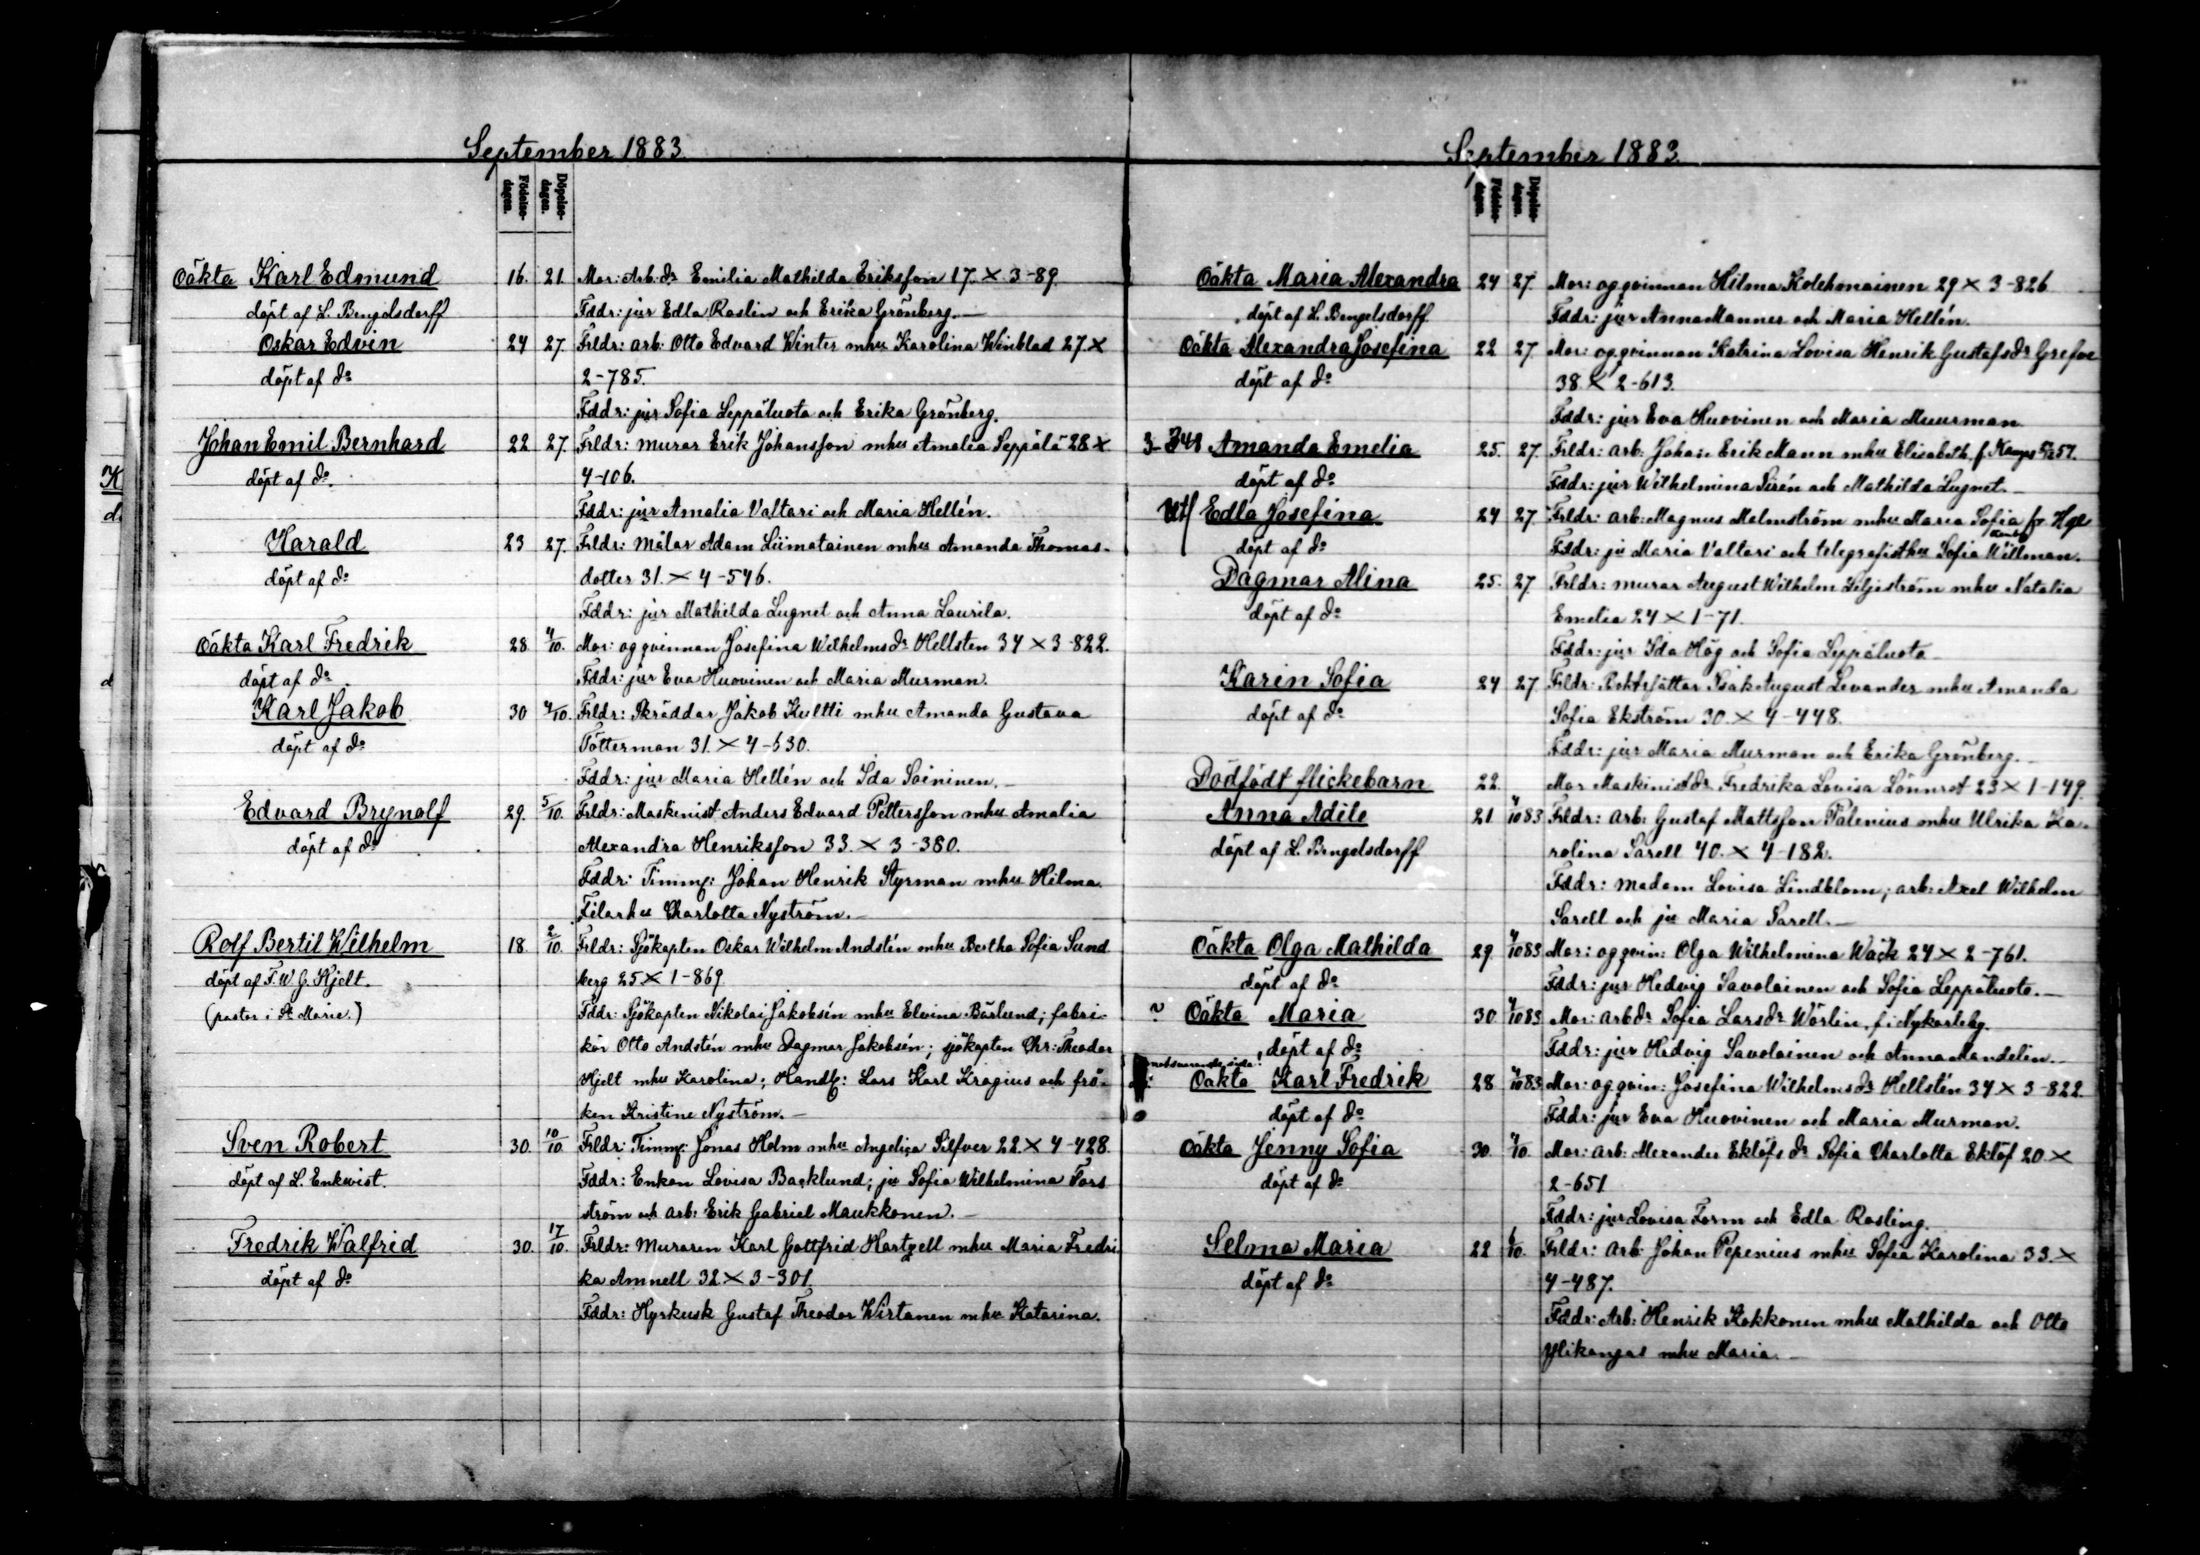 September 1883.
Födelse-dagen.
Döpelse-dagen.
Oäkta Karl Edmund 16. 21. Mor: Arb. dr Emilia Mathilda Eriksson 17. × 3-89.
döpt af L. Bengelsdorff Fddr: jur Edla Roslin och Erika Grönberg.
Oskar Edvin 24 27. Frldr: arb: Otto Edvard Winter mhu Karolina Winblad 27. ×
döpt af do 2-785.
Fddr: jur Sofia Leppäluoto och Erika Grönberg.
Johan Emil Bernhard 22 27. Frldr: murar Erik Johansson mhu Amalia Seppälä 28 ×
döpt af do 4-106.
Fddr: jur Amalia Valtari och Maria Hellén.
Harald 23 27. Frldr: målar Adam Liimatainen mhu Amanda Thomas-
döpt af do dotter 31. × 4-546.
Fddr: jur Mathilda Lugnet och Anna Laurila.
Oäkta Karl Fredrik 28. 4/10. Mor: ogqvinnan Josefina Wilhelmsdr Hellsten 34 × 3-822.
döpt af do Fddr: jur Eva Huovinen och Maria Murman.
Karl Jakob 30 4/10. Frldr: Skräddar Jakob Kultti mhu Amanda Gustava
döpt af do Pötterman 31. × 4-630.
Fddr: jur Maria Hellén och Ida Soininen.
Edvard Brynolf 29. 5/10. Frldr: Maskinist Anders Edvard Pettersson mhu Amalia
döpt af do Alexandra Henriksson 33. × 3-380.
Fddr: Timmg: Johan Henrik Styrman mhu Hilma.
Filarhu Charlotta Nyström.
Rolf Bertil Wilhelm 18. 2/10. Frldr: Sjökapten Oskar Wilhelm Andstén mhu Bertha Sofia Sund
döpt af F. W. G. Hjelt. berg 25 × 1-869.
(pastor i St Marie.) Fddr: Sjökapten Nikolai Jakobsén mhu Elvina Bärlund; fabri-
kör Otto Andstén mhu Dagmar Jakobsén; sjökapten Chr: Theodor
Hjelt mhu Karolina; Handl: Lars Karl Krogius och frö-
ken Kristine Nyström.
Sven Robert 30. 10/10. Frldr: Timmg: Jonas Holm mhu Angelica Silfver 22 × 4-428.
döpt af L. Enkvist. Fddr: Enkan Lovisa Backlund; ju Sofia Wilhelmina Fors
ström och arb: Erik Gabriel Maukkonen.
Fredrik Walfrid 30. 17/10. Frldr: Muraren Karl Gottfrid Hartzell mhu Maria Fredri
döpt af do ka Amnell 32 × 3-301.
Fddr: Kyrkusk Gustaf Theodor Wirtanen mhu Katarina.
September 1883.
Födelse-dagen.
Döpelse-dagen.
Oäkta Maria Alexandra 24 27. Mor: ogqvinnan Hilma Kolehmainen 29 × 3-826
döpt af L. Bengelsdorff Fddr: jur Anna Manner och Maria Hellén.
Oäkta Alexandra Josefina 22 27. Mor: ogqvinnan Katrina Lovisa Henrik Gustafsdr Grefve
döpt af do 38. × 2-613.
Fddr: jur Eva Huovinen och Maria Muurman
Amanda Emelia 25. 27. Frldr: arb: Johan Erik Mann mhu Elisabeth
döpt af do Fddr: jur Wilhelmina Sirén och Mathilda Lugnet.
Utf Edla Josefina 24 27. Frldr: arb: Magnus Malmström mhu Maria Sofia
döpt af do Fddr: ju Maria Valtari och telegrafisthu Sofia Willman.
Dagmar Alina 25. 27 Frldr: murar August Wilhelm Liljeström mhu Natalia
döpt af do Emelia 24 × 1-71.
Fddr: jur Ida Hög och Sofia Leppäluoto
Karin Sofia 24 27 Frldr: Isak August Levander mhu Amanda
döpt af do Sofia Ekström 30. × 4-448.
Fddr: jur Maria Murman och Erika Grönberg.
Dödfödt flickebarn 22. Mor Maskinistdr Fredrika Lovisa Lönnrot 23 × 1-149.
Anna Adéle 21 4/10 83 Frldr: arb: Gustaf Mattsson Palenius mhu Ulrika Ka-
döpt af L. Bengelsdorff rolina Sarell 40. × 4-182.
Fddr: madam Lovisa Lindblom; arb: Axel Wilhelm
Sarell och ju Maria Sarell.
Oäkta Olga Mathilda 29 4/10 83 Mor: ogqvin: Olga Wilhelmina Wäck 24 × 2-761.
döpt af do Fddr: jur Hedvig Savolainen och Sofia Leppäluoto.
? Oäkta Maria 30 4/10 83 Mor: arbdr Sofia Larsdr Wörlin, f. i Nykarleby.
döpt af do Fddr: jur Hedvig Savolainen och Anna Mandelin.
Oäkta Karl Fredrik 28 4/10 83 Mor: ogqvin: Josefina Wilhelmsdr Hellstén 34 × 3-822
döpt af do Fddr: jur Eva Huovinen och Maria Murman.
Oäkta Jenny Sofia 30. 4/10. Mor: arb: Alexander Eklöfs dr Sofia Charlotta Eklöf 20 ×
döpt af do 2-651
Fddr: jur Lovisa Form och Edla Rosling.
Selma Maria 22 6/10. Frldr: arb: Johan Pepenius mhu Sofia Karolina 33. ×
döpt af do 4-487.
Fddr: Arb: Henrik Kokkonen mhu Mathilda och Otto
Ylikangas mhu Maria.